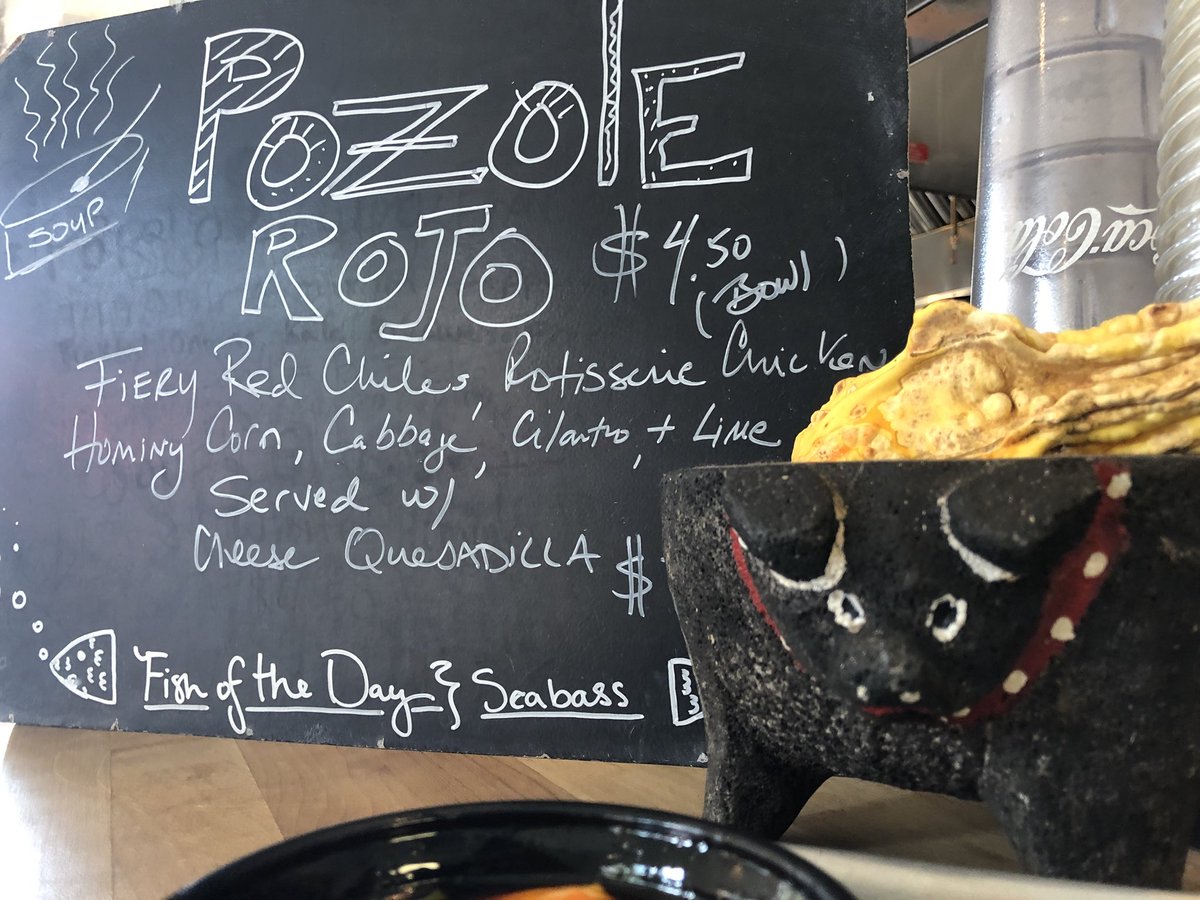 POZOlE
ROJO $4.50
(BOWl)
SOUP
FIERY Red Chiles, Rotisserie Chicken
Hominy Corn, Cabbage, Cilantro, + Lime
Served w/
Cheese QUESADILLA $
Fish of the Day } Seabass
Coca-Cola